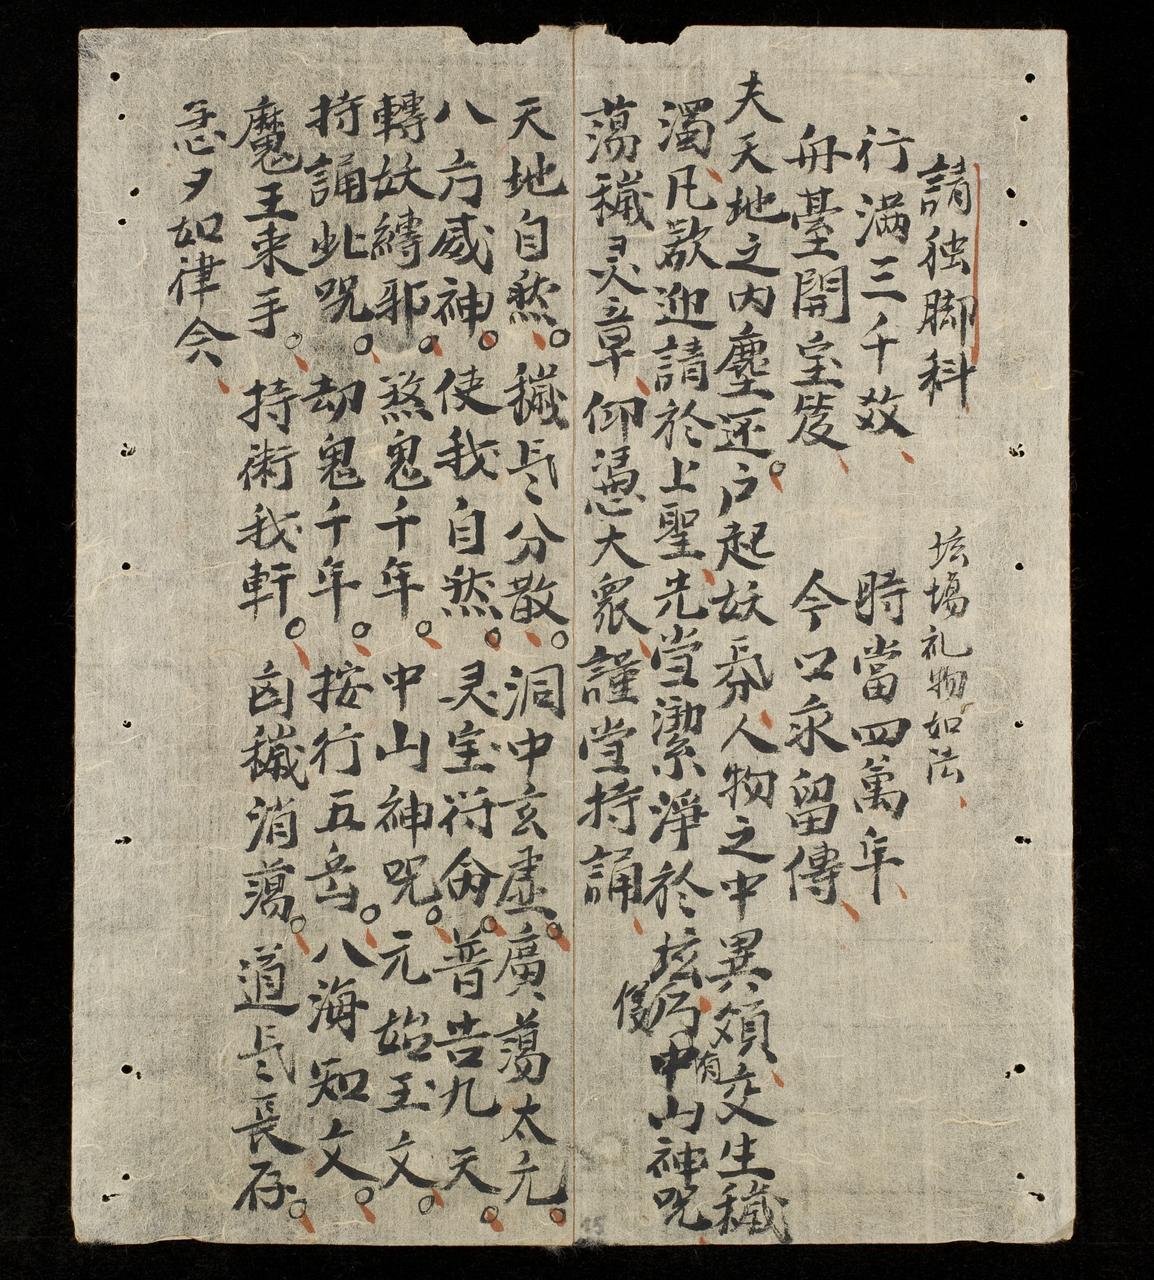 請独脚科 坛場礼物如法
行滿三千㪅 時當四萬年
舟臺開宝笈 今口永留傳
夫天地之内塵还户起妖氛人物之中異類交生穢
濁凡歇迎請於上聖先當潔淨於坛仍中有山神咒儀
蕩穢灵章仰憑大衆謹當持誦
天地自然穢炁分散洞中玄虛廣蕩太元
八方威神使我自然灵宝符命普告九天
轉妖縛邪煞鬼千年中山神咒元始玉文
持誦此咒劫鬼千年按行五岳八海知文
魔王束手持術我軒凶穢消蕩道炁長存
急夕如律令